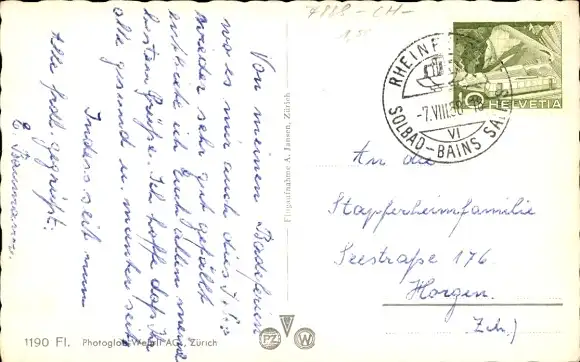 Von meinen Badeferien
wo es mir auch dies J.
wieder sehr gut gefällt
entbiete ich Euch allen meine
besten Grüße. Ich hoffe daß Ihr
alle gesund u. munter seit.
Indess seit nun
Alle herzl. gegrüßt.
E. Baumann.
1190 Fl. Photoglob-Wehrli AG., Zürich
Flugaufnahme A. Jansen, Zürich
PZ W
7868 -CH-
1,50
RHEINF
-7.VIII.50-18
VI
SOLBAD-BAINS SAL
10 HELVETIA
An die
Stapferheimfamilie
Seestraße 176
Horgen.
Zch.)